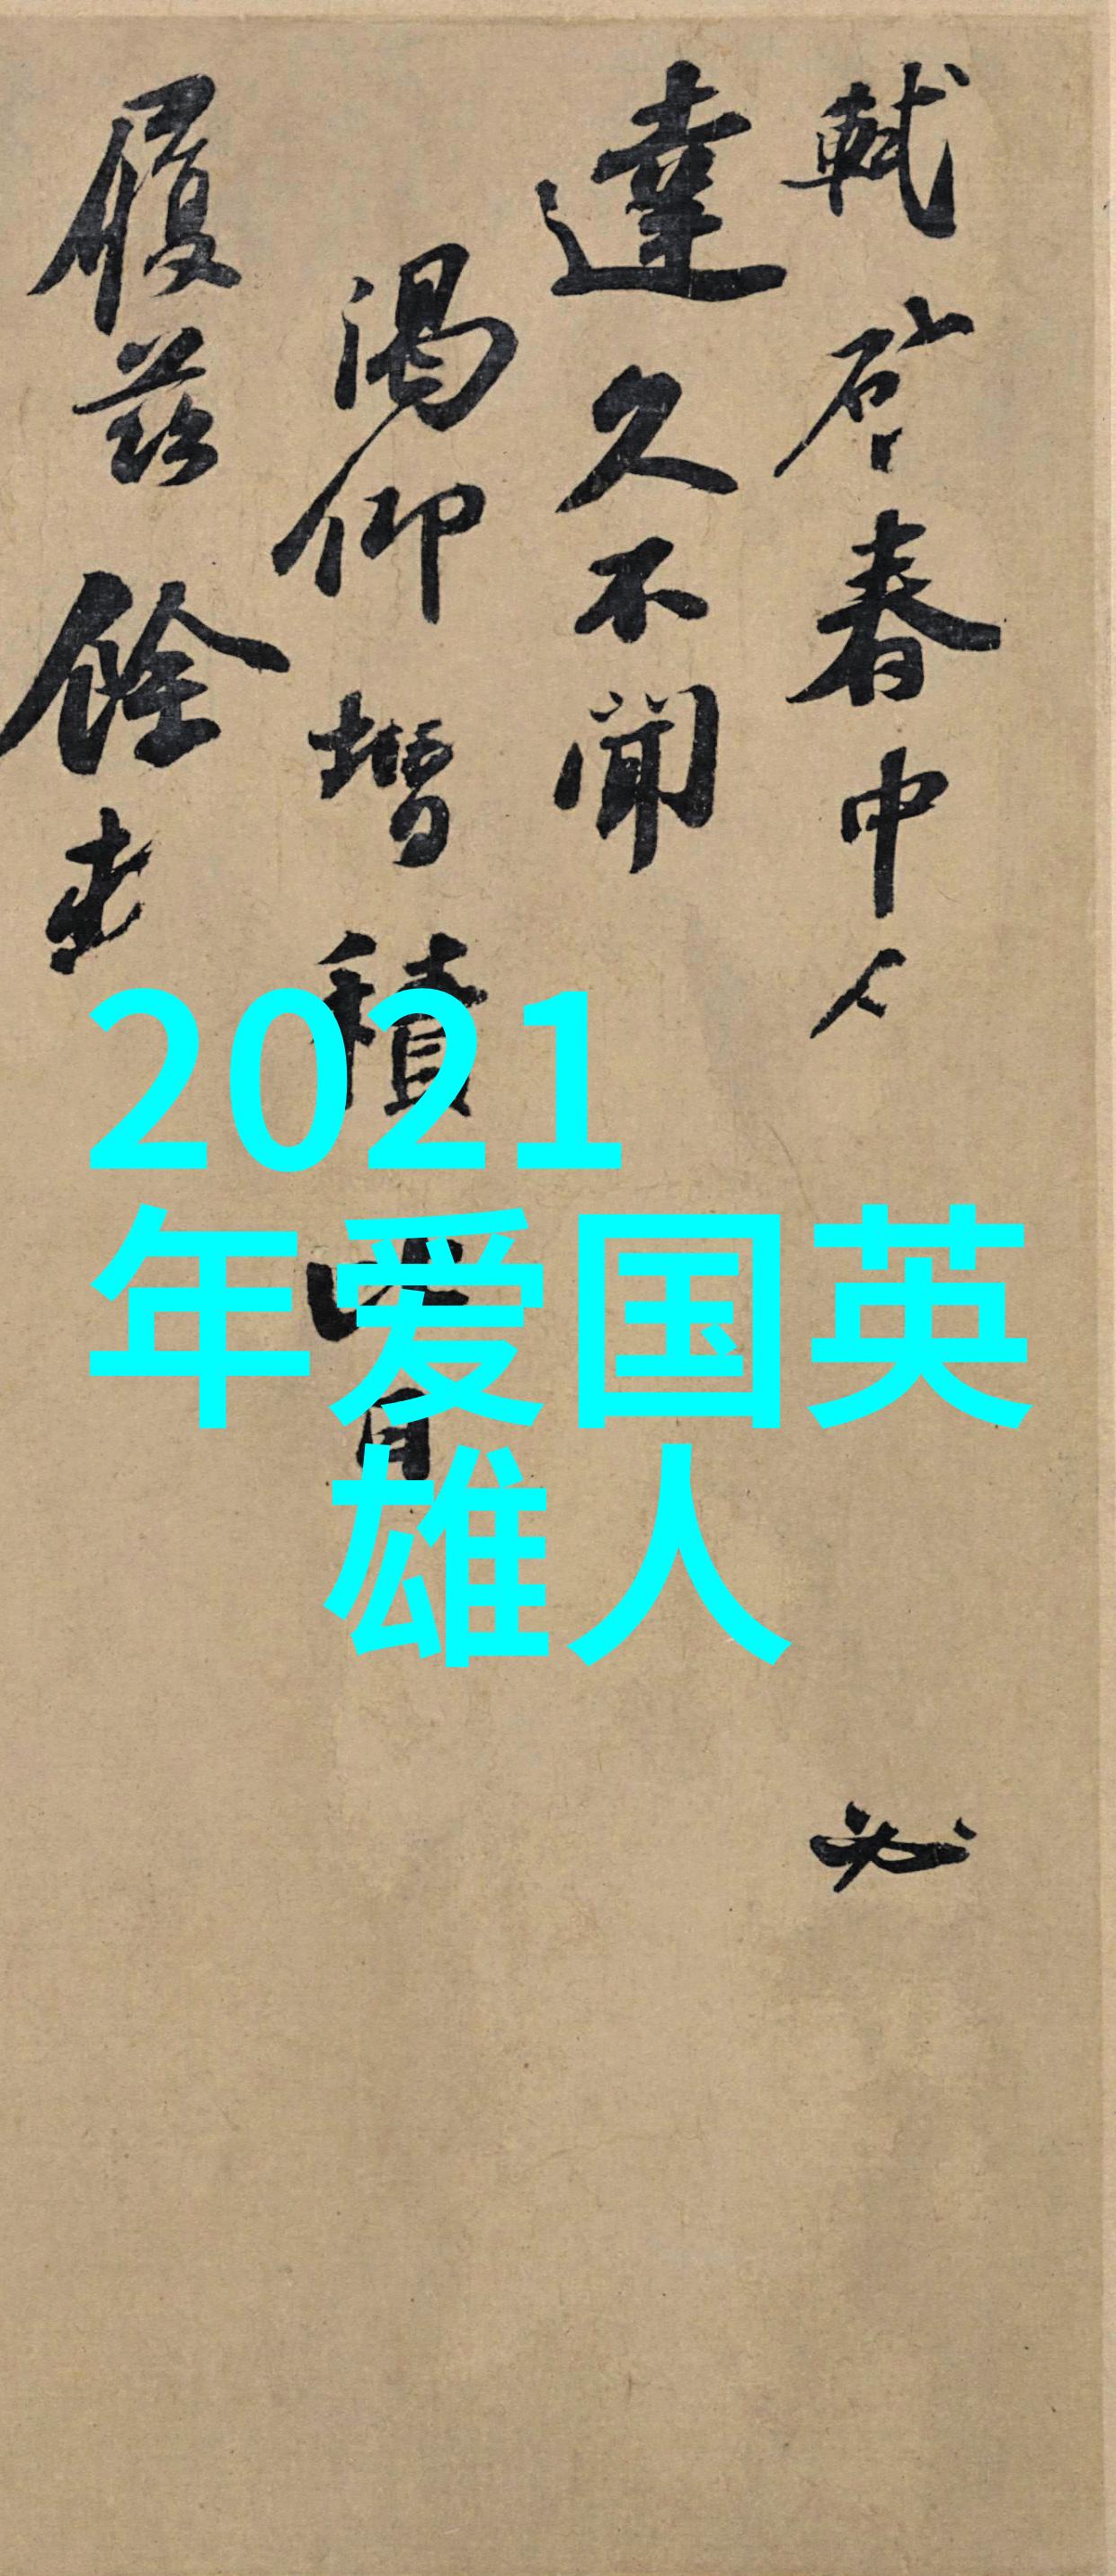 軾啓春中人必
達久不聞
渴仰增積
履茲餘
2021
年爱国英
雄人